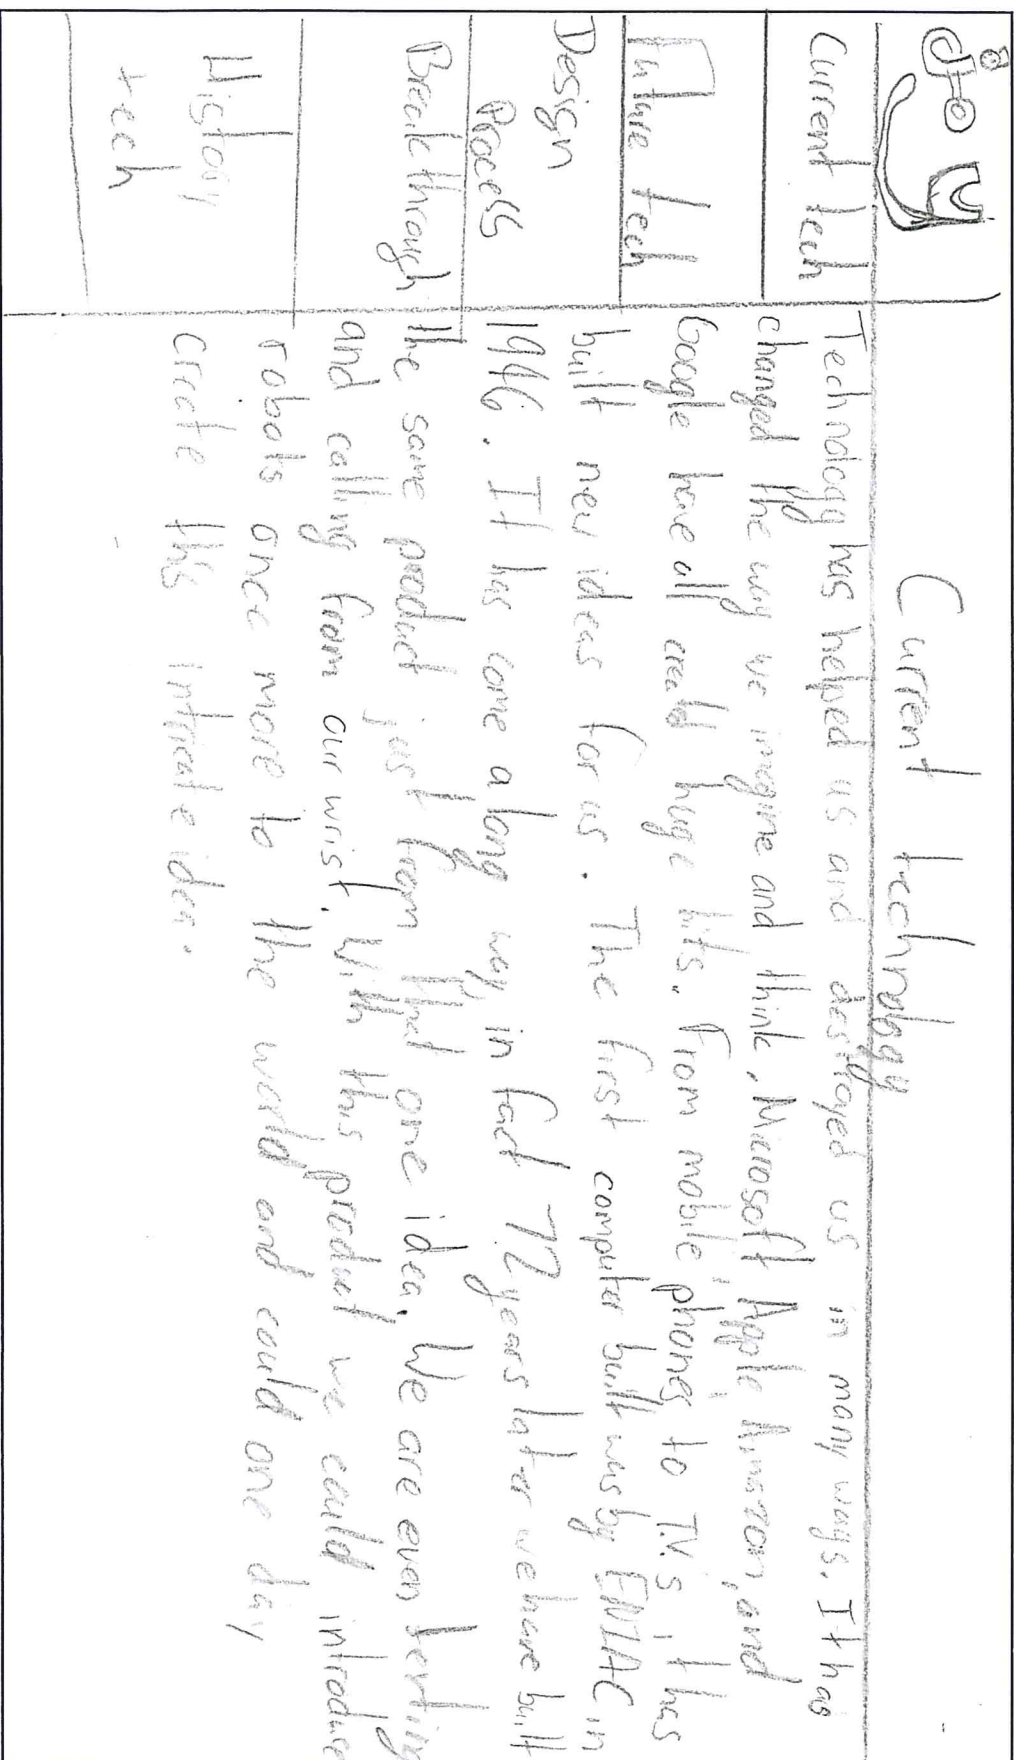 Current technology
Current tech
Future tech
Design
Process
Breakthrough
History
tech
Technology has helped us and destroyed us in many ways. It has
changed the way we imagine and think. Microsoft, Apple, Amazon, and
Google have all created huge hits. From mobile phones to T.V.s, it has
built new ideas for us. The first computer built was by ENIAC in
1946. It has come a long way, in fact 72 years later we have built
the same product just from that one idea. We are even texting
and calling from our wrist. With this product we could introduce
robots once more to the world and could one day
create this intricate idea.